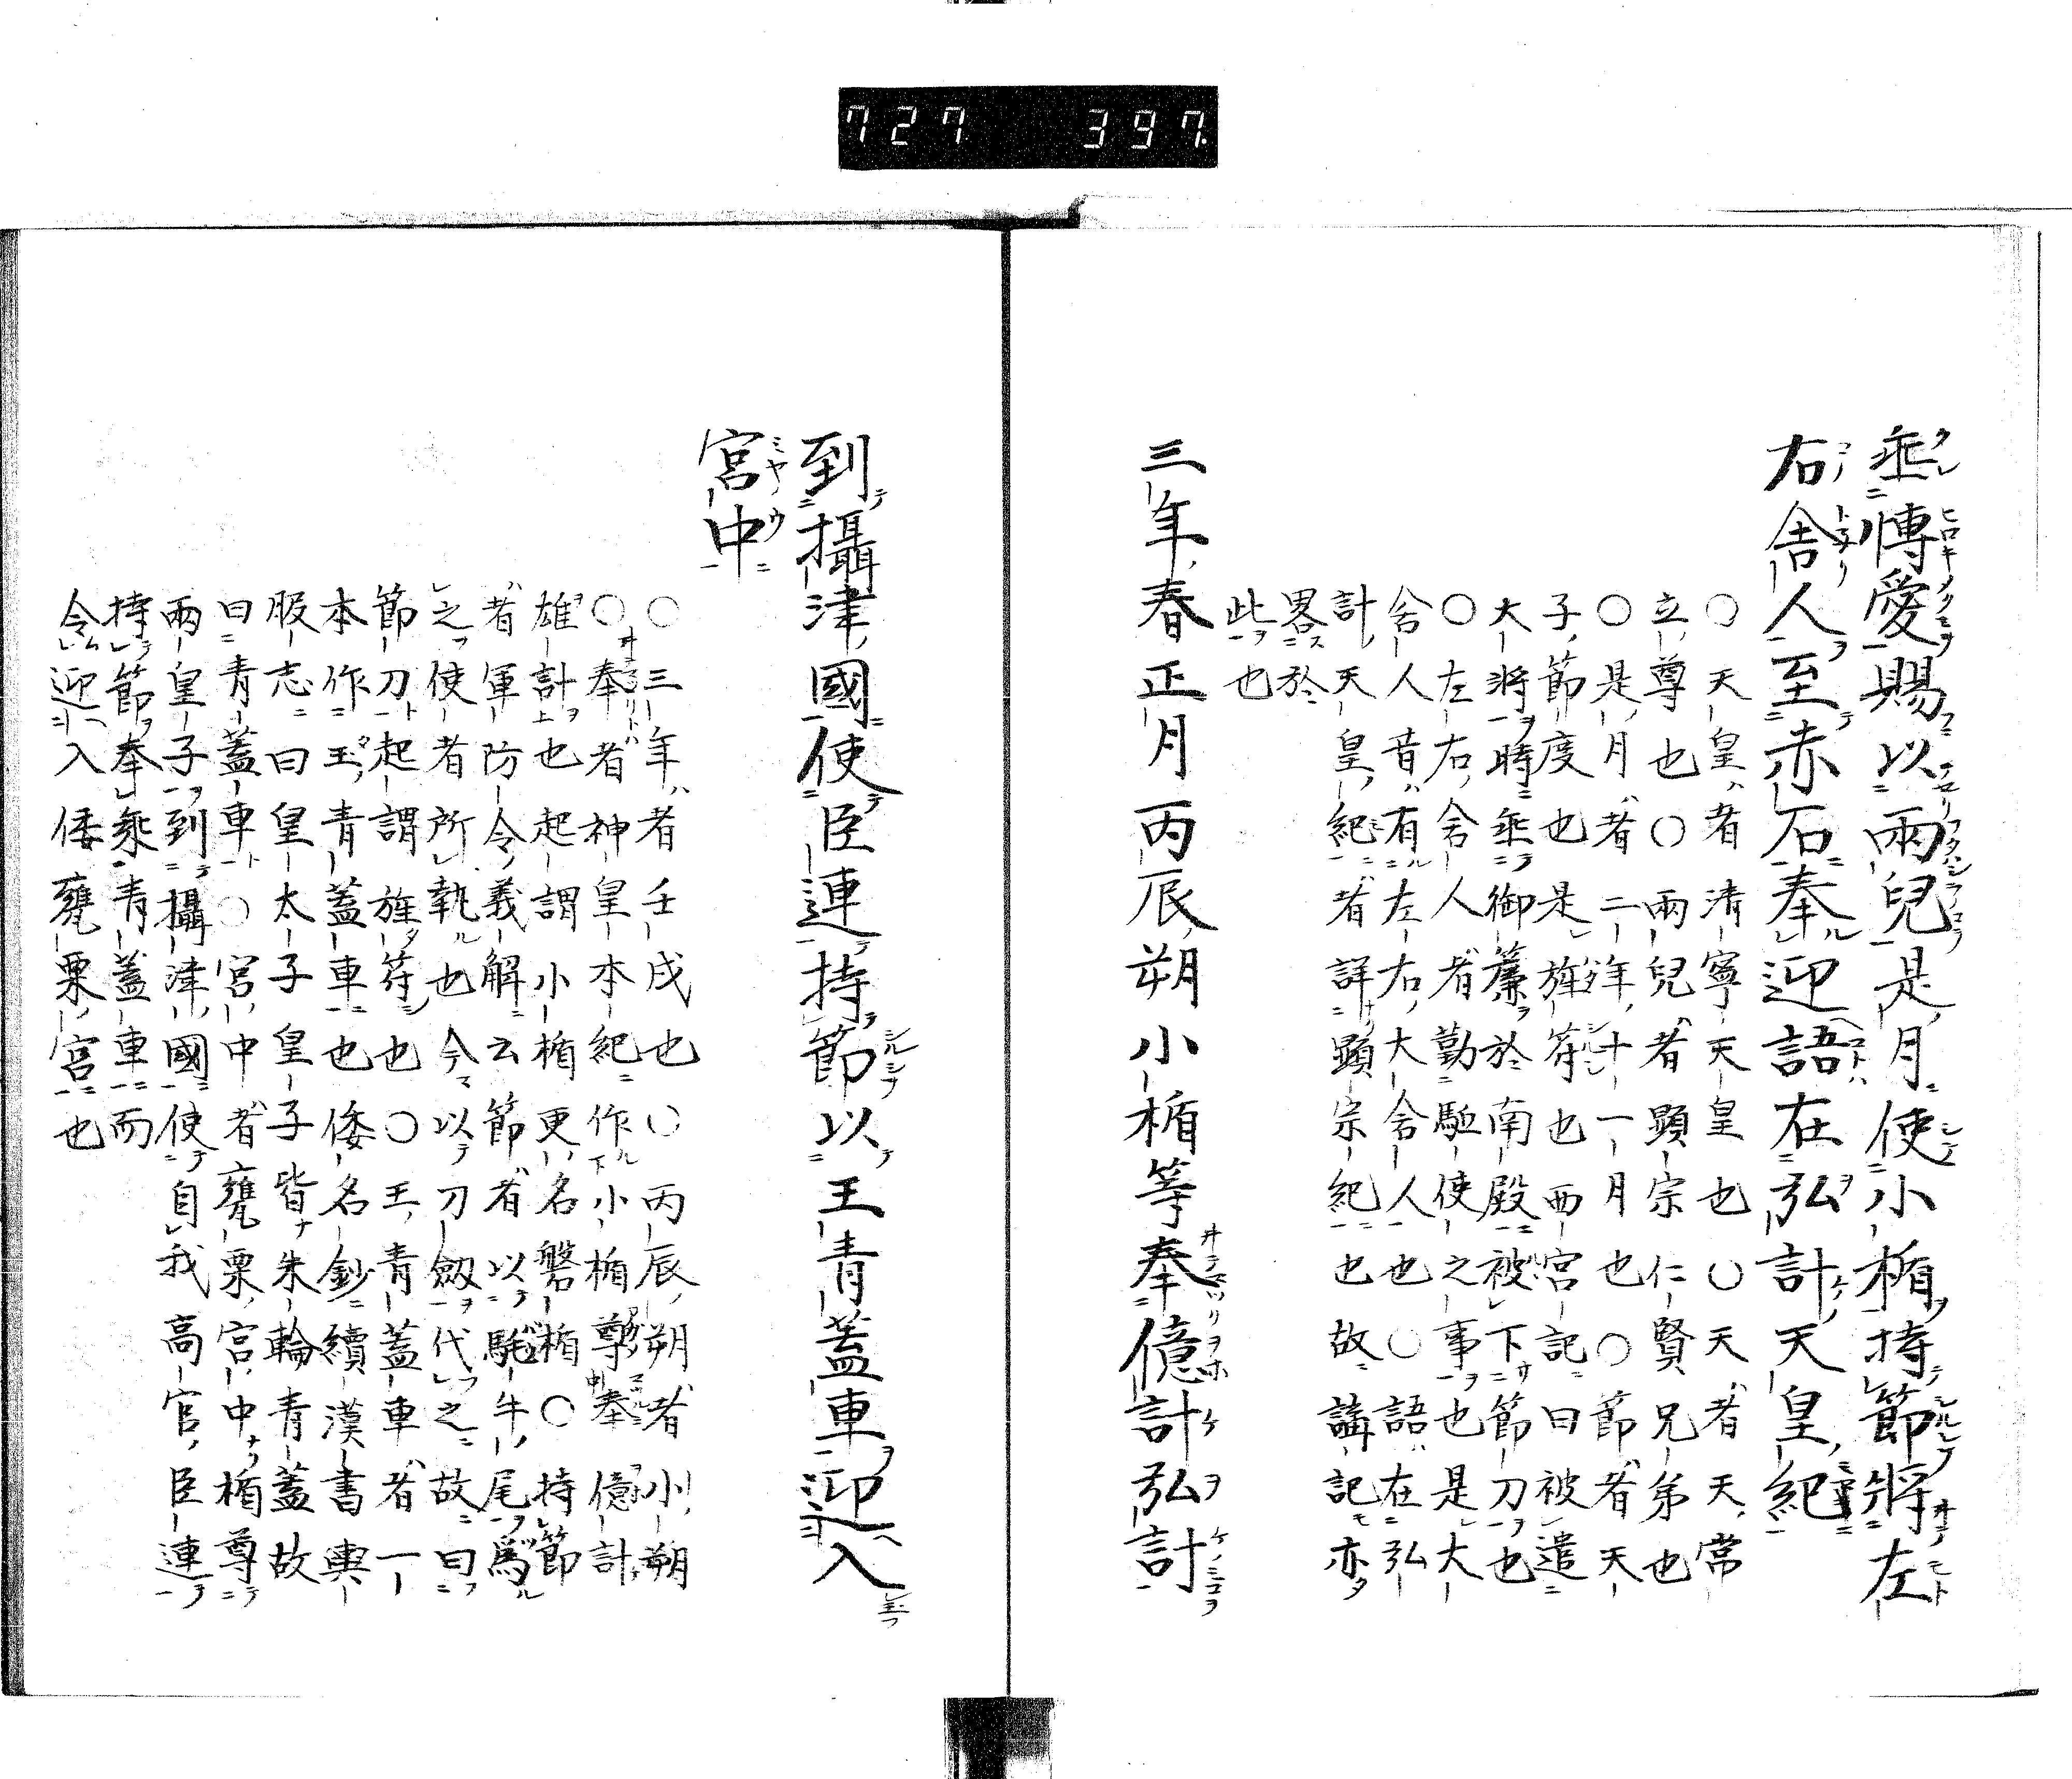 727 397.
垂慱愛賜以兩兒是月使小楯持節將左
右舍人至赤石奉迎語在弘計天皇紀
○天皇者清寧天皇也○天者天常
立尊也○兩兒者顯宗仁賢兄弟也
○是月者二年十一月也○節者天
子節度也是旌符也西宮記曰被遣
大將時垂御簾於南殿被下節刀也
○左右舍人者勤駈使之事也是大
舍人昔有左右大舍人也○語在弘
計天皇紀者詳顯宗紀也故講記亦
畧於
此也
三年春正月丙辰朔小楯等奉億計弘計
到攝津國使臣連持節以王青蓋車迎入
宮中
○三年者壬戌也○丙辰朔者小朔
○奉者神皇本紀作小楯尊奉億計
雄計也起謂小楯更名磐楯○持節
者軍防令義解云節者以髦牛尾爲
之使者所執也今以刀劔代之故曰
節刀起謂旌符也○王青蓋車者一
本作玉青蓋車也倭名鈔續漢書輿
服志曰皇太子皇子皆朱輪青蓋故
曰青蓋車○宮中者甕栗宮中楯尊
兩皇子到攝津國使自我高官臣連
持節奉乘青蓋車而
令迎入倭甕栗宮也